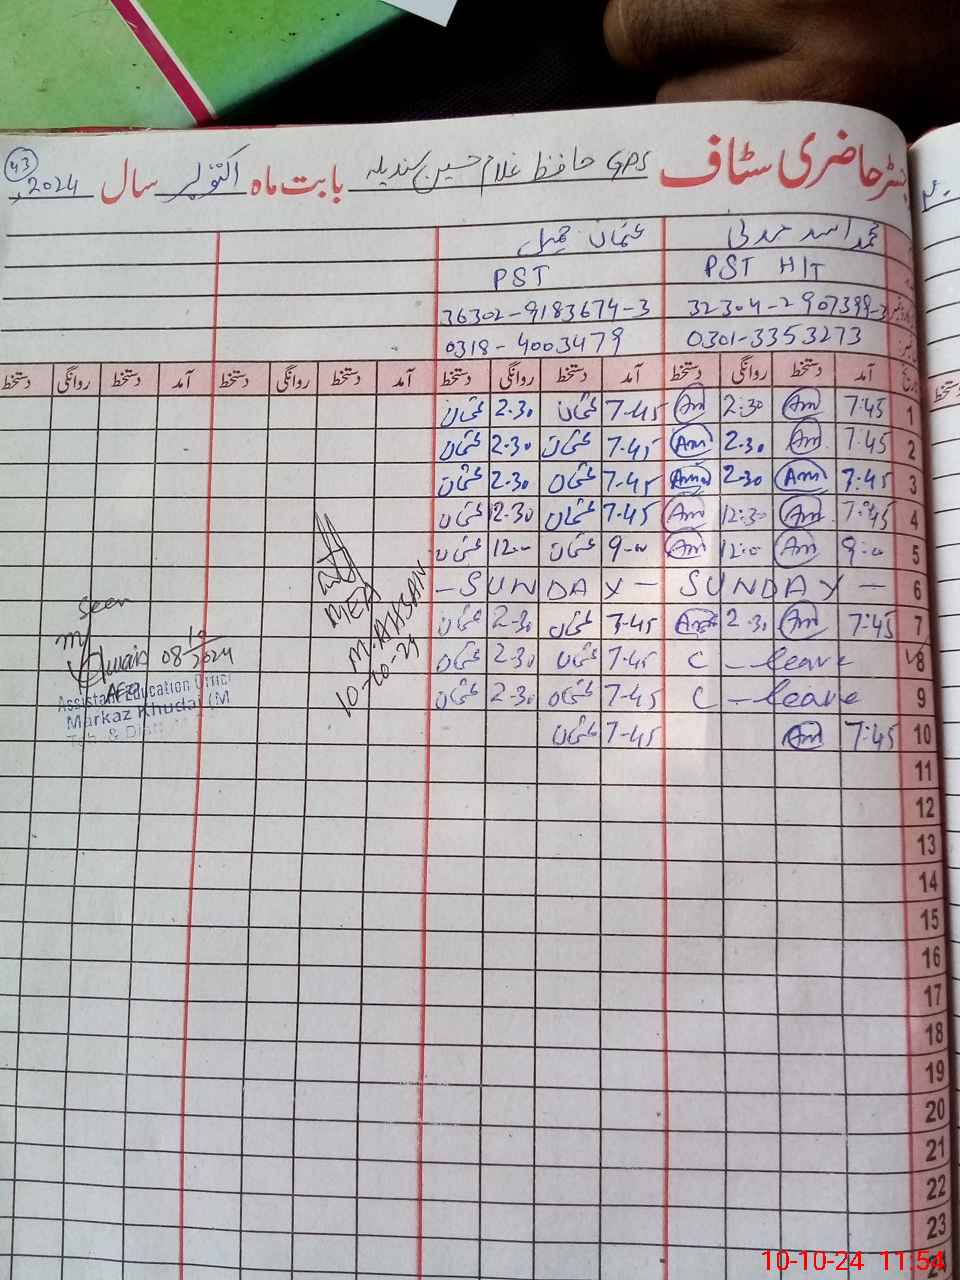 رجسٹر حاضری سٹاف GPS حافظ غلام حسین سندیلہ بابت ماہ اکتوبر سال 2024ء
43
محمد اسد عثمان جمیل
PST HIT PST
32304-2907399-3 36302-9183674-3
0301-3353273 0318-4003479
آمد دستخط روانگی دستخط آمد دستخط روانگی دستخط آمد دستخط روانگی دستخط آمد دستخط روانگی دستخط
1 7:45 Am 2:30 Am 7-45 عثمان 2-30 عثمان
2 7:45 Am 2-30 Am 7-45 عثمان 2-30 عثمان
3 7:45 Am 2-30 Am 7-45 عثمان 2-30 عثمان
4 7:45 Am 12:30 Am 7-45 عثمان 12-30 عثمان
5 9-00 Am 12:00 Am 9-00 عثمان 12-00 عثمان
6 SUNDAY - - SUNDAY -
7 7:45 Am 2-30 Am 7-45 عثمان 2-30 عثمان
8 C-leave 7-45 عثمان 2-30 عثمان
9 C-leave 7-45 عثمان 2-30 عثمان
10 7:45 Am 7-45 عثمان
11
12
13
14
15
16
17
18
19
20
21
22
23
MEA
M.AHSAN
10-10-24
Seen
08/10/2024
AEO
Assistant Education Officer
Markaz Khudai (M
Teh. & Distt
دستخط
10-10-24 11:54